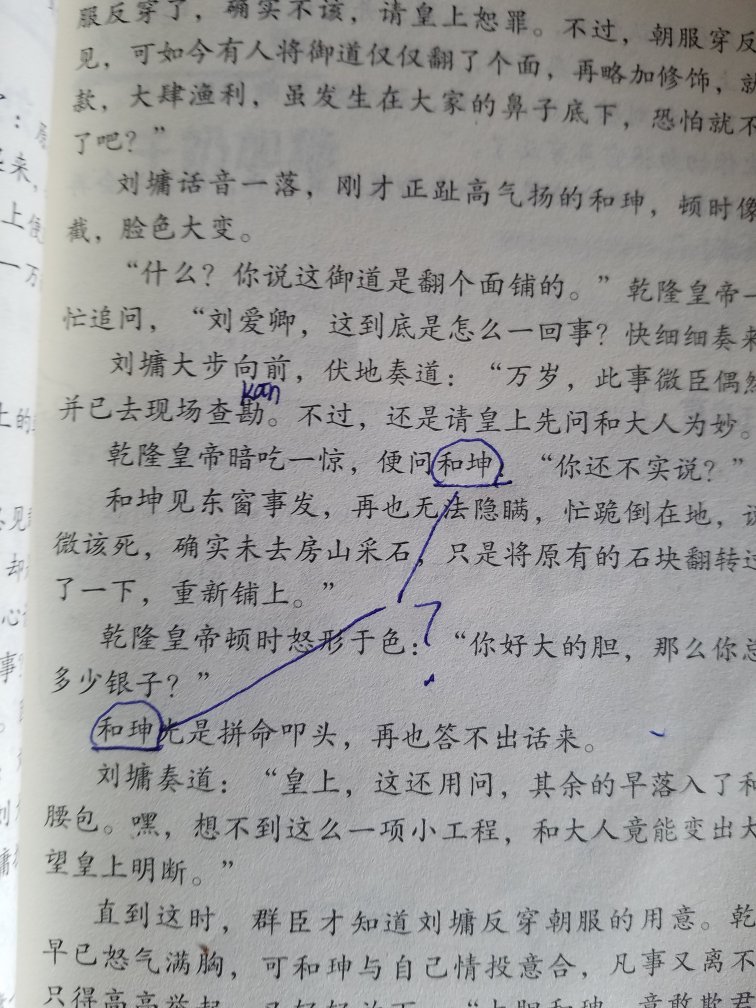 服反穿了，确实不该，请皇上恕罪。不过，朝服穿反
见，可如今有人将御道仅仅翻了个面，再略加修饰，就
款，大肆渔利，虽发生在大家的鼻子底下，恐怕就不
了吧？”
刘墉话音一落，刚才正趾高气扬的和珅，顿时像
截，脸色大变。
“什么？你说这御道是翻个面铺的。”乾隆皇帝一
忙追问，“刘爱卿，这到底是怎么一回事？快细细奏来
刘墉大步向前，伏地奏道：“万岁，此事微臣偶然
kan
并已去现场查勘。不过，还是请皇上先问和大人为妙。
乾隆皇帝暗吃一惊，便问和坤：“你还不实说？”
和坤见东窗事发，再也无法隐瞒，忙跪倒在地，说
微该死，确实未去房山采石，只是将原有的石块翻转过
了一下，重新铺上。”
?
乾隆皇帝顿时怒形于色：“你好大的胆，那么你总
多少银子？”
和珅光是拼命叩头，再也答不出话来。
刘墉奏道：“皇上，这还用问，其余的早落入了和
腰包。嘿，想不到这么一项小工程，和大人竟能变出大
望皇上明断。”
直到这时，群臣才知道刘墉反穿朝服的用意。乾
早已怒气满胸，可和珅与自己情投意合，凡事又离不
只得高高举起，